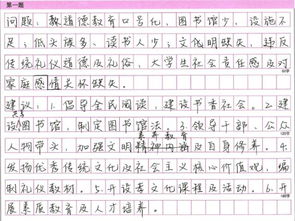 第一题
问题:教道德教育口号化,图书馆少,设施不
足;低头族多,读书人少;文化明缺失,违反
传统优秀道德及礼俗,大学生社会责任感及对
家庭感情关怀缺失。
建议:1.倡导全民阅读,建设书香社会。2.建
共享
设图书馆,制定图书馆法。3.领导干部、公众
素养教育
人物带头,加强文明精神内涵及自身修养。4.
发扬优秀传统文化及社会主义核心价值观,编
制礼仪教材。5.开设孝文化课程及活动。6.开
展素质教育及人才培养。